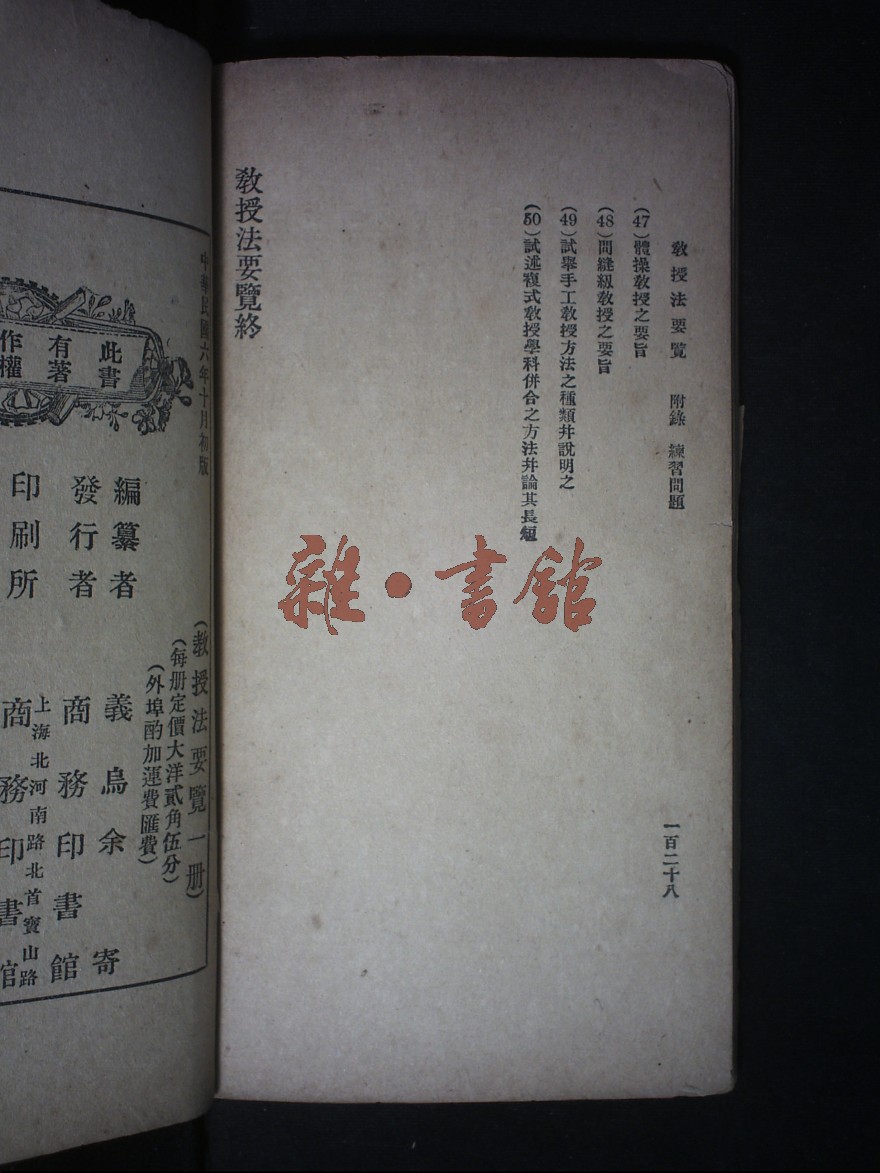 教授法要覽 附錄 練習問題
一百二十八
(47)體操教授之要旨
(48)問縫級教授之要旨
(49)試舉手工教授方法之種類幷說明之
(50)試述複式教授學科併合之方法幷論其長短
教授法要覽終
雜·書館
中華民國六年十月初版
此書
有著
作權
(教授法要覽一册)
(每册定價大洋貳角伍分)
(外埠酌加運費匯費)
編纂者 義烏余寄
發行者 商務印書館
上海北河南路北首寶山路
印刷所 商務印書館